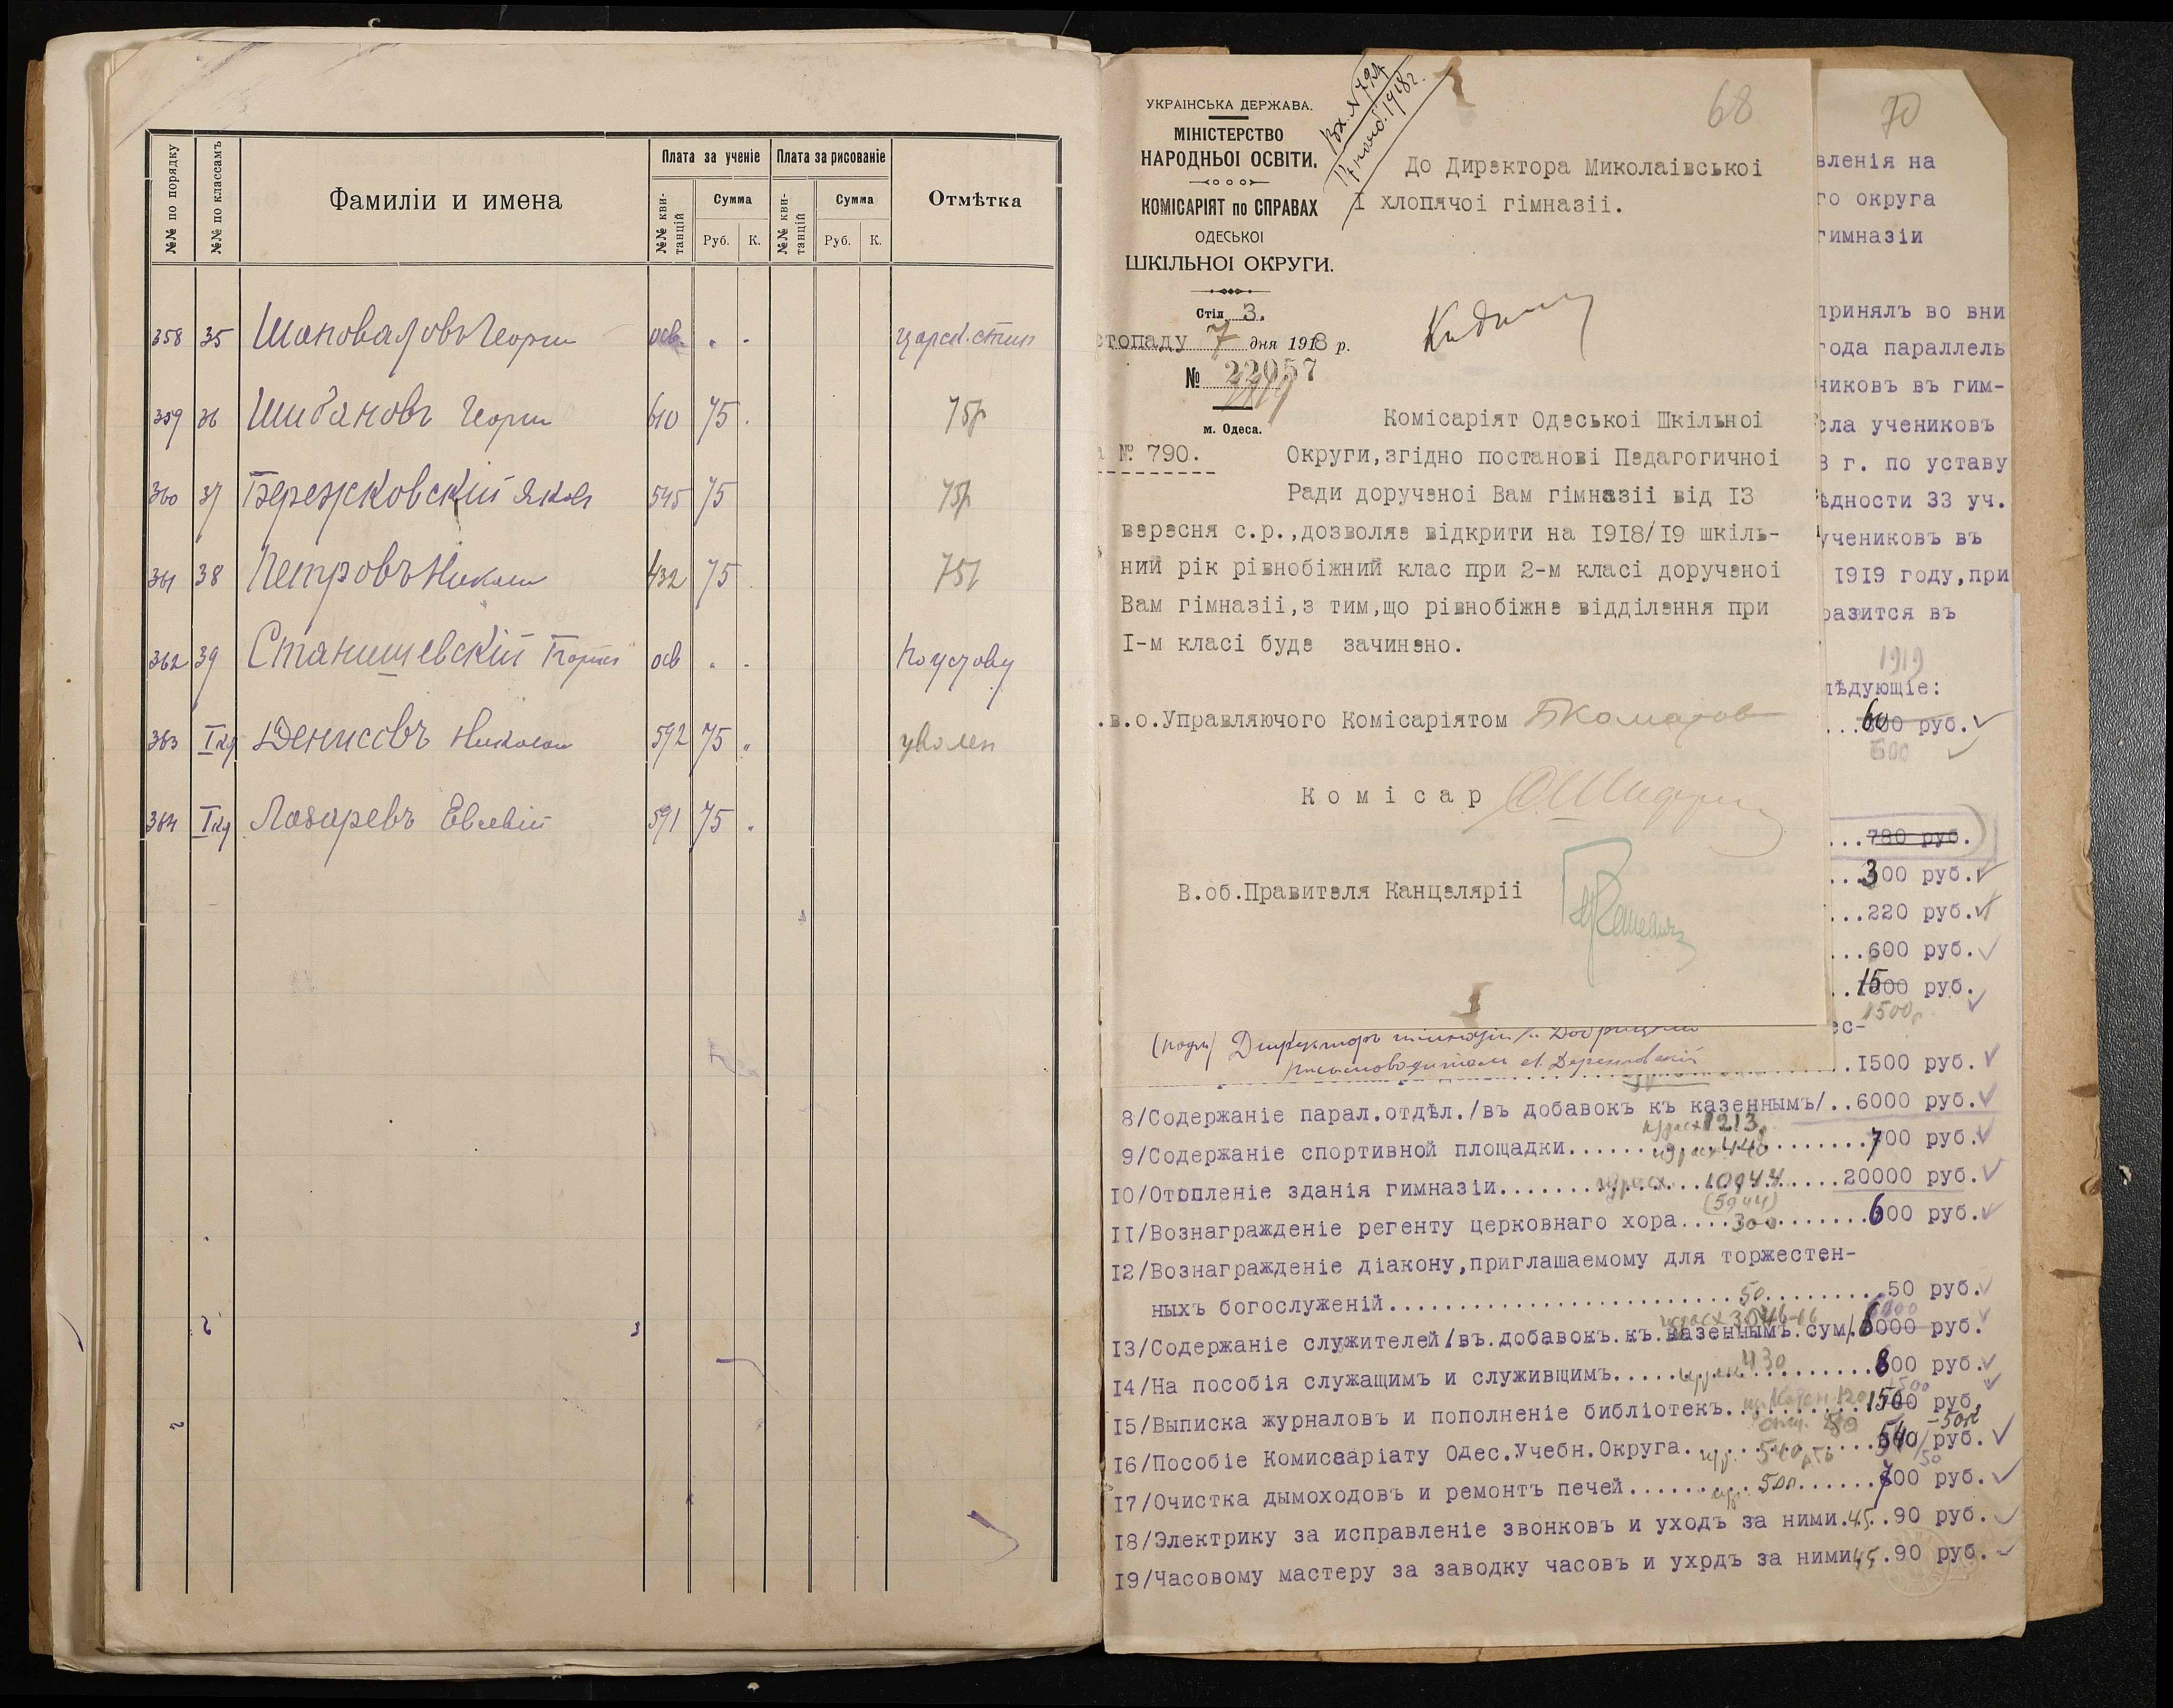 №№ по порядку
№№ по классамъ
Фамиліи и имена
Плата за ученіе
Плата за рисованіе
№№ кви-
танцій
Сумма
№№ кви-
танцій
Сумма
Отмѣтка
Руб. К.
Руб. К.
358 35 Шаповаловъ Георгій осв. царск. стип
359 36 Шибановъ Георгій 610 75 75р
360 37 Бережковскій Яковъ 545 75 75р
361 38 Петровъ Николай 432 75 75р
362 39 Станишевскій осв По уставу
363 Iкл Денисовъ Николай 592 75 уволен
364 Iкл Лазаревъ Евсевій 591 75
68
Вх. №
1918 г.
УКРАІНСЬКА ДЕРЖАВА.
МІНІСТЕРСТВО
НАРОДНЬОІ ОСВІТИ.
КОМІСАРІЯТ по СПРАВАХ
ОДЕСЬКОІ
ШКІЛЬНОІ ОКРУГИ.
Стіл 3.
стопаду 7 дня 1918 р.
№ 22057
м. Одеса.
№ 790.
До Директора Миколаівськоі
I хлопячоі гімназіі.
Комісаріят Одеськоі Шкільноі
Округи,згідно постанові Педагогичноі
Ради дорученоі Вам гімназіі від I3
вересня с.р.,дозволяе відкрити на 1918/I9 шкіль-
ний рік рівнобіжний клас при 2-м класі дорученоі
Вам гімназіі,з тим,що рівнобіжне відділення при
I-м класі буде зачинено.
.в.о.Управляючого Комісаріятом
Комісар
В.об.Правителя Канцеляріі
70
вленія на
го округа
гимназіи
принялъ во вни
года параллель
никовъ въ гим-
сла учениковъ
8 г. по уставу
ѣдности 33 уч.
учениковъ въ
1919 году,при
разится въ
1919
лѣдующіе:
руб.
600
...780 руб.
...300 руб.
...220 руб.
...600 руб.
..1500 руб.
1500
ес-
(подп) Директоръ гимназіи
письмоводитель
..1500 руб.
8/Содержаніе парал.отдѣл./въ добавокъ къ казеннымъ/..6000 руб.
1213
9/Содержаніе спортивной площадки....................700 руб.
440
I0/Отопленіе зданія гимназіи....................20000 руб.
10944
(5944)
II/Вознагражденіе регенту церковнаго хора....300....600 руб.
I2/Вознагражденіе діакону,приглашаемому для торжестен-
ныхъ богослуженій....................50....50 руб.
3046-16
I3/Содержаніе служителей/въ.добавокъ.къ.казеннымъ.сум/.6000 руб.
430
I4/На пособія служащимъ и служившимъ............800 руб.
1500
I5/Выписка журналовъ и пополненіе библіотекъ....1500 руб.
I6/Пособіе Комиссаріату Одес.Учебн.Округа.......540 руб.
I7/Очистка дымоходовъ и ремонтъ печей....500....700 руб.
I8/Электрику за исправленіе звонковъ и уходъ за ними.45..90 руб.
I9/Часовому мастеру за заводку часовъ и ухрдъ за ними45.90 руб.